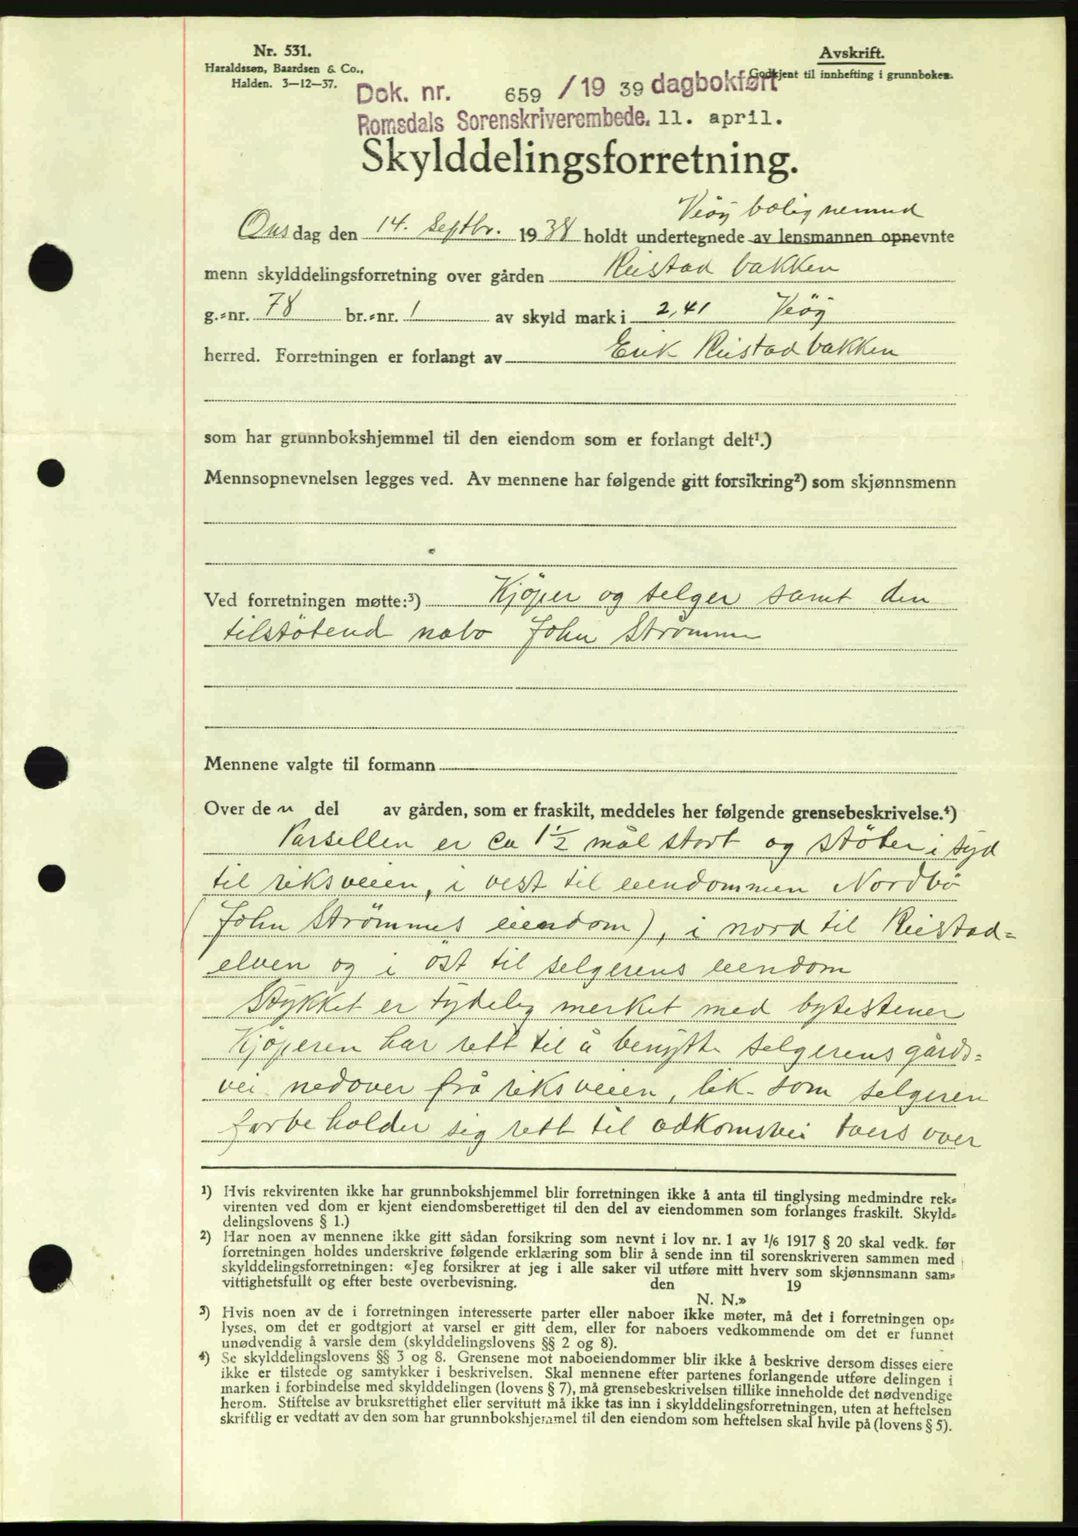 Nr. 531.
Haraldssøn, Baardsen & Co.,
Halden. 3—12—37.
Avskrift.
Godkjent til innhefting i grunnboken.
Dok. nr. 659 /19 39 dagbokført
Romsdals Sorenskriverembede. 11. april.
Skylddelingsforretning.
Veöy bolignemnd
Onsdag den 14. Septbr. 1938 holdt undertegnede av lensmannen opnevnte
menn skylddelingsforretning over gården Reistadbakken
g.-nr. 78 br.-nr. 1 av skyld mark i 2,41 Veöy
herred. Forretningen er forlangt av Erik Reistadbakken
som har grunnbokshjemmel til den eiendom som er forlangt delt¹.)
Mennsopnevnelsen legges ved. Av mennene har følgende gitt forsikring²) som skjønnsmenn
Ved forretningen møtte:³) Kjöper og selger samt den
tilstötend nabo John Strömme
Mennene valgte til formann
Over den del av gården, som er fraskilt, meddeles her følgende grensebeskrivelse.⁴)
Parsellen er ca 1½ mål stort og stöter i syd
til riksveien, i vest til eiendommen Nordbö
(John Strömmes eiendom), i nord til Reistad=
elven og i öst til selgerens eiendom
Stykket er tydelig merket med bytestener
Kjöperen har rett til å benytte selgerens gårds=
vei nedover frå riksveien, lik- som selgeren
forbeholder sig rett til adkomstvei tvers over
¹) Hvis rekvirenten ikke har grunnbokshjemmel blir forretningen ikke å anta til tinglysing medmindre rek-
virenten ved dom er kjent eiendomsberettiget til den del av eiendommen som forlanges fraskilt. Skyld-
delingslovens § 1.)
²) Har noen av mennene ikke gitt sådan forsikring som nevnt i lov nr. 1 av 1/6 1917 § 20 skal vedk. før
forretningen holdes underskrive følgende erklæring som blir å sende inn til sorenskriveren sammen med
skylddelingsforretningen: «Jeg forsikrer at jeg i alle saker vil utføre mitt hverv som skjønnsmann sam-
vittighetsfullt og efter beste overbevisning. den 19
N. N.»
³) Hvis noen av de i forretningen interesserte parter eller naboer ikke møter, må det i forretningen op-
lyses, om det er godtgjort at varsel er gitt dem, eller for naboers vedkommende om det er funnet
unødvendig å varsle dem (skylddelingslovens §§ 2 og 8).
⁴) Se skylddelingslovens §§ 3 og 8. Grensene mot naboeiendommer blir ikke å beskrive dersom disses eiere
ikke er tilstede og samtykker i beskrivelsen. Skal mennene efter partenes forlangende utføre delingen i
marken i forbindelse med skylddelingen (lovens § 7), må grensebeskrivelsen tillike inneholde det nødvendige
herom. Stiftelse av bruksrettighet eller servitutt må ikke tas inn i skylddelingsforretningen, uten at heftelsen
skriftlig er vedtatt av den som har grunnbokshjemmel til den eiendom som heftelsen skal hvile på (lovens § 5).